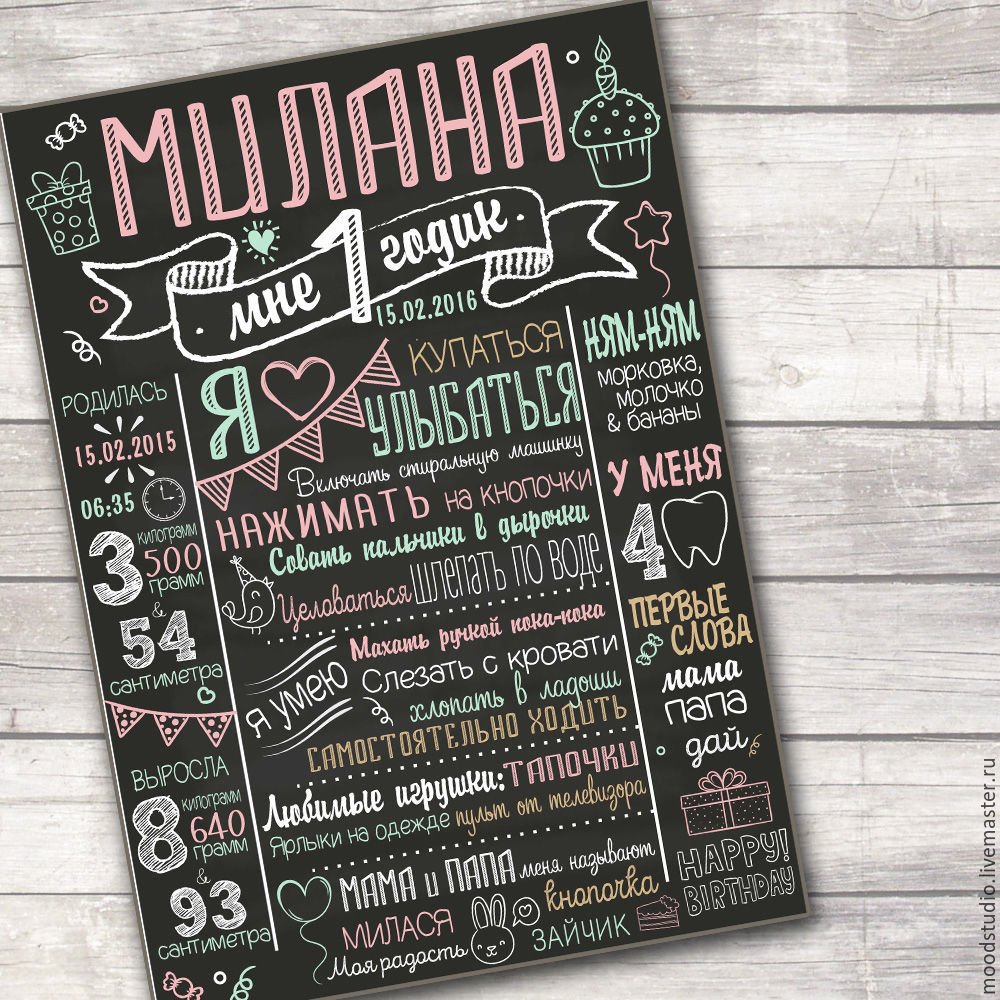 МИЛАНА
мне 1 годик
15.02.2016
РОДИЛАСЬ
15.02.2015
06:35
3 килограмм
500
грамм
&
54
сантиметра
ВЫРОСЛА
8 килограмм
640
грамм
&
93
сантиметра
Я
КУПАТЬСЯ
УЛЫБАТЬСЯ
Включать стиральную машинку
НАЖИМАТЬ на кнопочки
Совать пальчики в дырочки
Целоваться ШЛЕПАТЬ ПО ВОДЕ
Я умею
Махать ручкой пока-пока
Слезать с кровати
хлопать в ладоши
САМОСТОЯТЕЛЬНО ХОДИТЬ
Любимые игрушки: ТАПОЧКИ
Ярлыки на одежде пульт от телевизора
МАМА и ПАПА меня называют
МИЛАСЯ кнопочка
Моя радость ЗАЙЧИК
НЯМ-НЯМ
морковка,
молочко
& бананы
У МЕНЯ
4
ПЕРВЫЕ
СЛОВА
мама
папа
дай
HAPPY!
BIRTHDAY
moodstudio.livemaster.ru